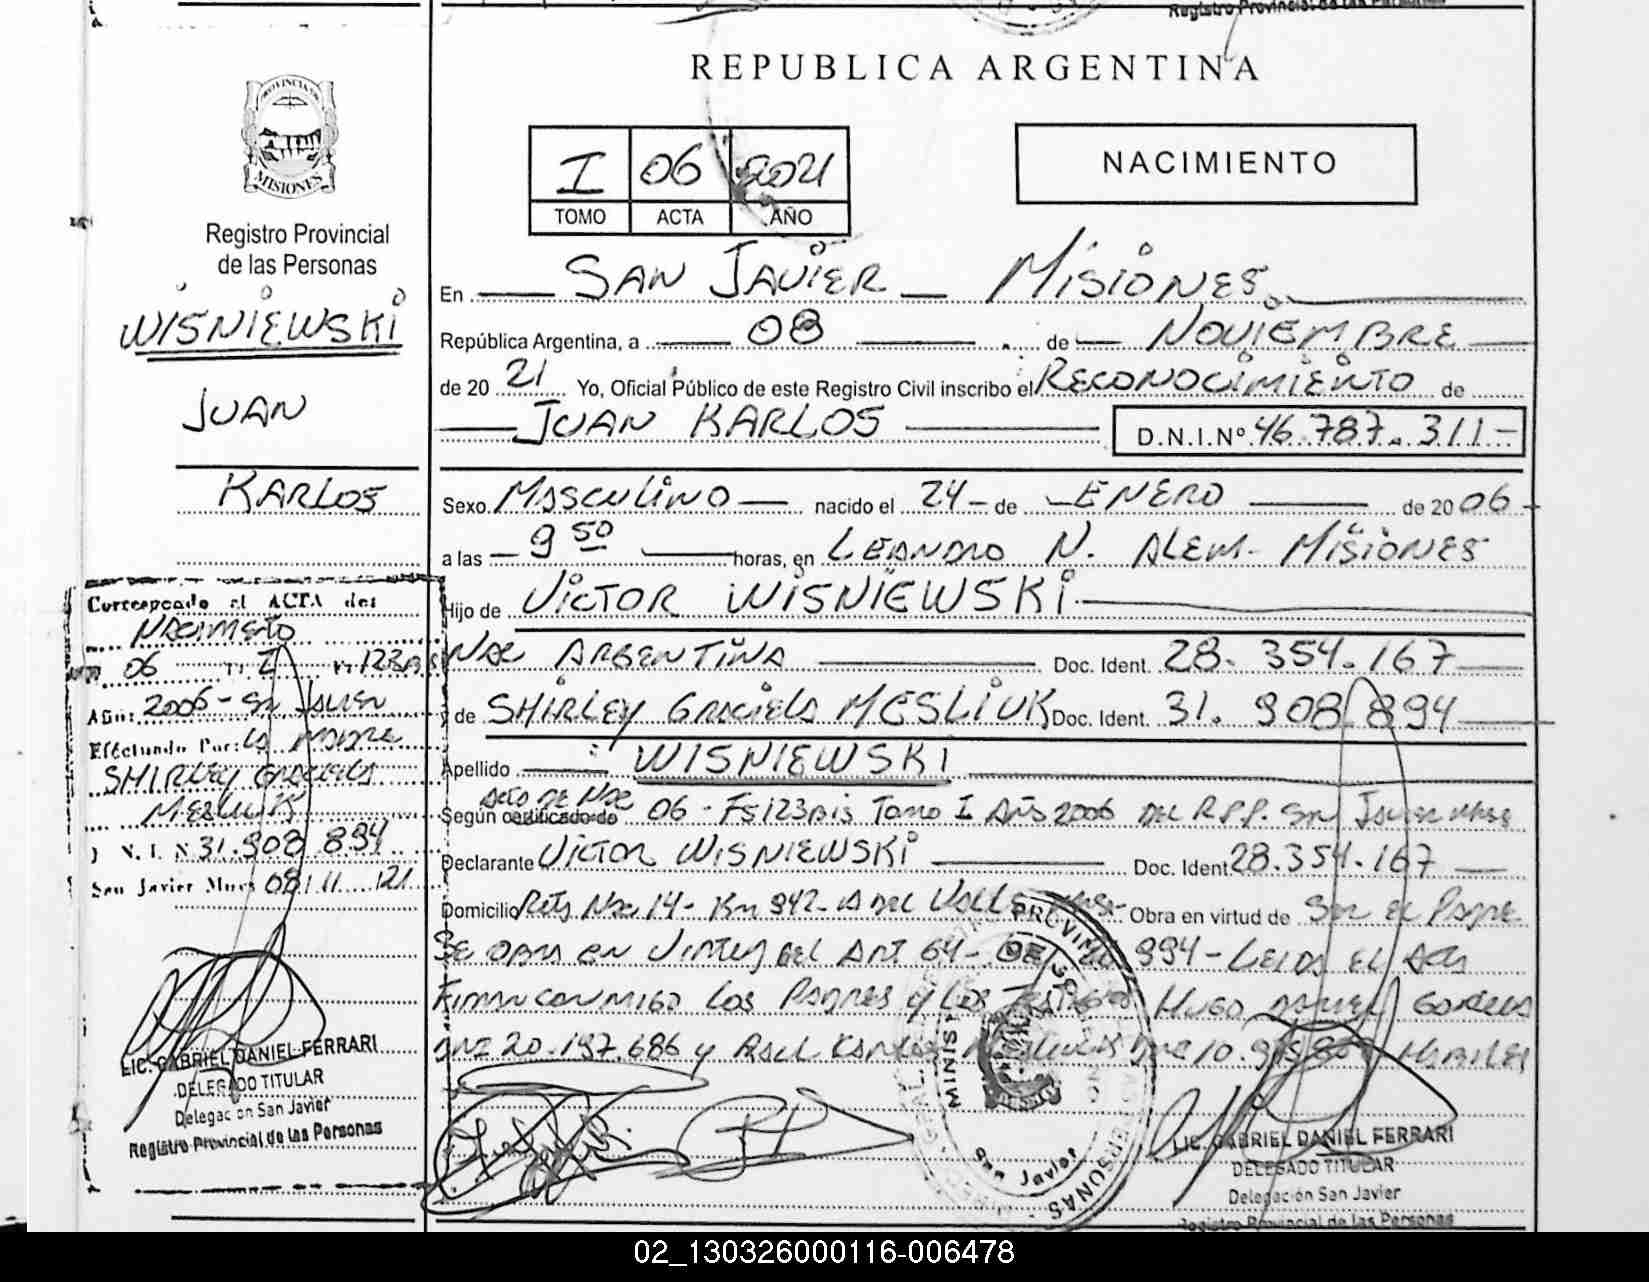 Registro Provincial de las Personas
REPUBLICA ARGENTINA
PROVINCIA DE
MISIONES
I 06 2021
TOMO ACTA AÑO
NACIMIENTO
Registro Provincial
de las Personas
WISNIEWSKI
JUAN
KARLOS
En SAN JAVIER MISIONES
República Argentina, a 08 de NOVIEMBRE
de 20 21 Yo, Oficial Público de este Registro Civil inscribo el RECONOCIMIENTO de
JUAN KARLOS D.N.I.Nº 46.787.311-
Sexo MASCULINO nacido el 24 de ENERO de 2006
a las 9 50 horas, en LEANDRO N. ALEM - MISIONES
Hijo de VICTOR WISNIEWSKI
NAC ARGENTINA Doc. Ident. 28.354.167
y de SHIRLEY GRACIELA MESLIUK Doc. Ident. 31.908.894
Apellido WISNIEWSKI
Según certificado de ACTA DE NAC 06 - Fs 123 Bis Tomo I Año 2006 DEL R.P.P. Sn Javier Mnes
Declarante VICTOR WISNIEWSKI Doc. Ident. 28.354.167
Domicilio Ruta Nac 14 - Km 942 - A DEL Valle Mnes - Obra en virtud de Ser el Padre
Se obra en virtud del Art 64 - 994 - Leida el Acta
Firman conmigo los Padres y los Testigos Hugo Daniel
DNI 20.197.686 y Raul DNI 10. Habiles
Correspondo al ACTA de:
NACIMIENTO
06 I 123 Bis
Año: 2006 - Sn Javier
Efectuado Por: LA MADRE
SHIRLEY GRACIELA
MESLIUK
D.N.I.N 31.908.894
San Javier Mnes 08/11/21
LIC. GABRIEL DANIEL FERRARI
DELEGADO TITULAR
Delegación San Javier
Registro Provincial de las Personas
San Javier
LIC. GABRIEL DANIEL FERRARI
DELEGADO TITULAR
Delegación San Javier
Registro Provincial de las Personas
02_130326000116-006478